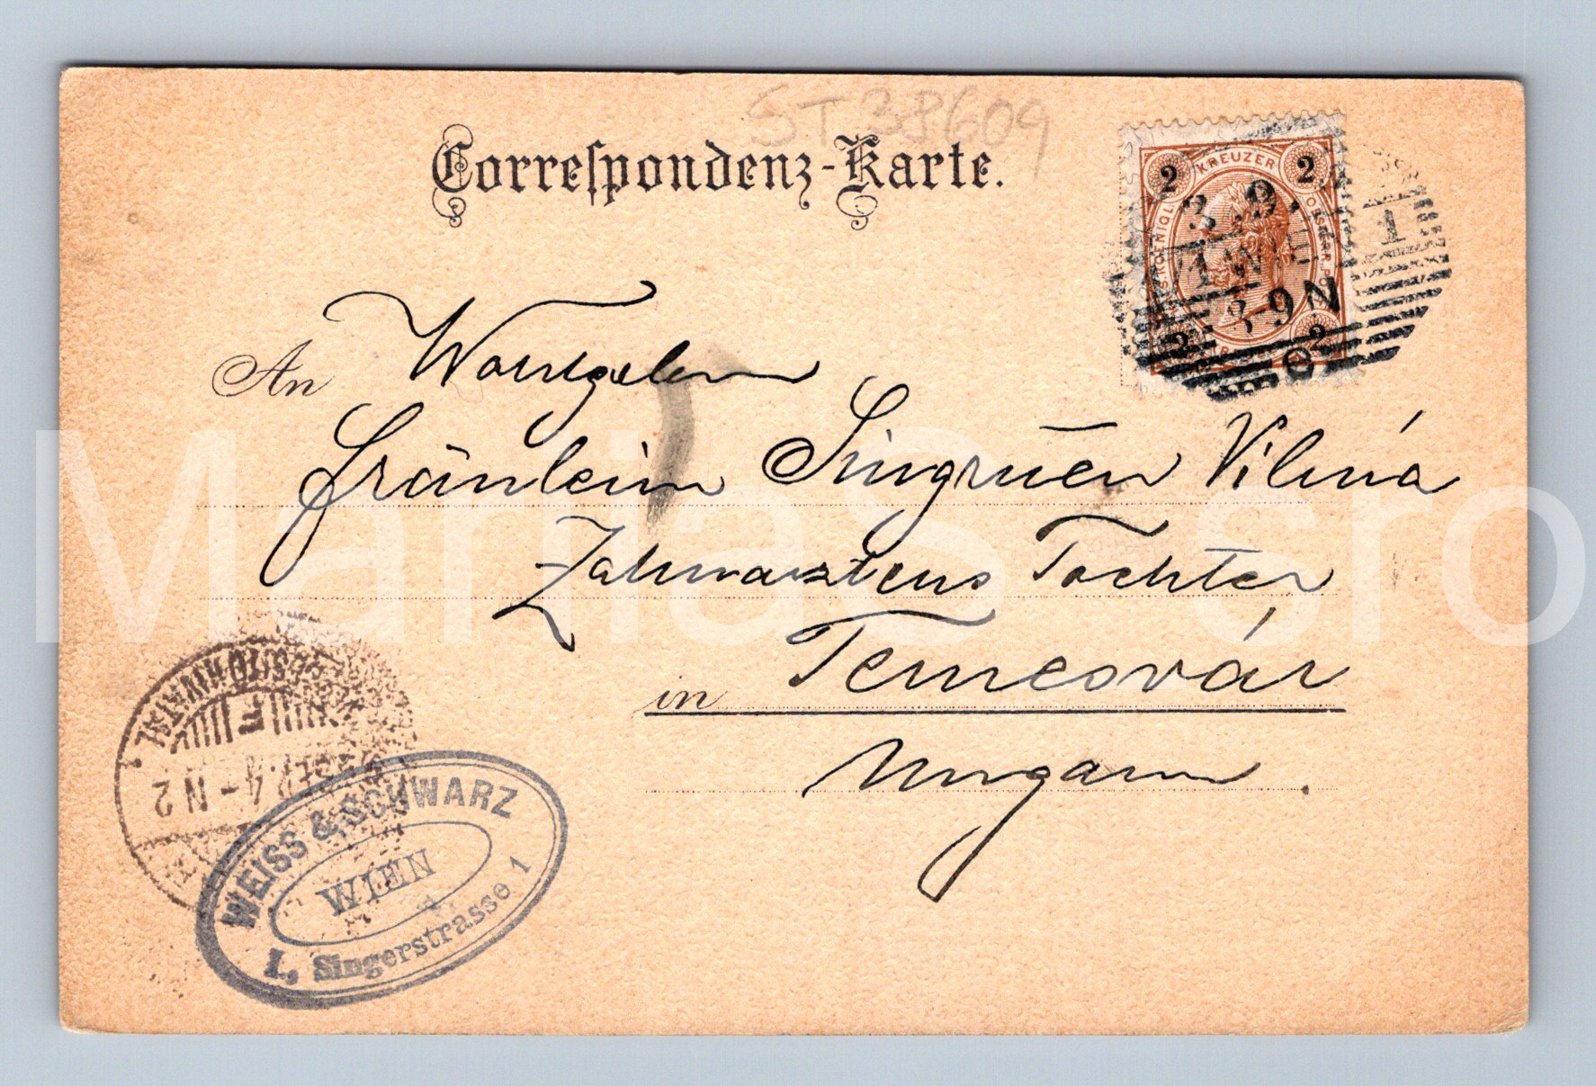 ST 38609
Correſpondenz-Karte.
2 KREUZER 2
3.9.
1 WIEN 1
8-9N
2 2
An Wohlgeboren
Fräulein Singrüen Vilmá
Zahnarztens Tochter
in Temesvár
Ungarn.
F
4-N2
WEISS & SCHWARZ
WIEN
I., Singerstrasse 1
Marilas.sro